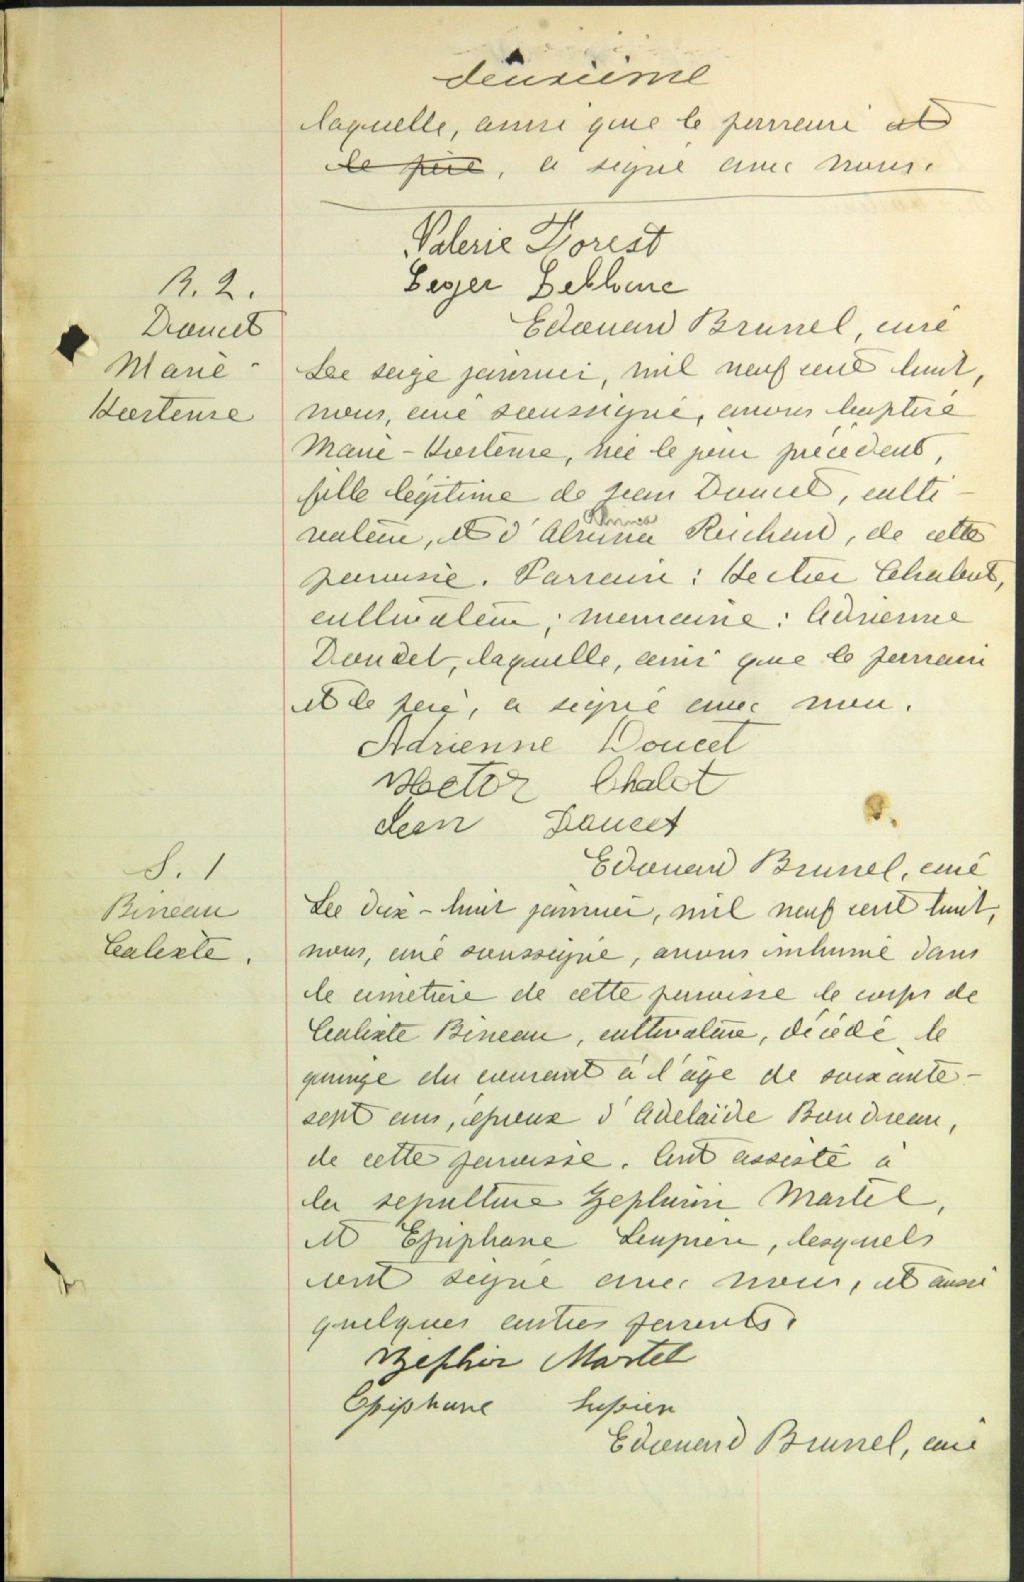 deuxième
laquelle, ainsi que le parrain et
le père, a signé avec nous.
Valerie Forest
Leger Leblanc
B. 2.
Edouard Brunel, curé
Doucet
Marie-
Hortense
Le seize janvier, mil neuf cent huit,
nous, curé soussigné, avons baptisé
Marie-Hortense, née le jour précédent,
fille légitime de Jean Doucet, culti-
vateur, et d' Richard, de cette
paroisse. Parrain : Hector Chalut,
cultivateur ; marraine : Adrienne
Doucet, laquelle, ainsi que le parrain
et le père, a signé avec nous.
Adrienne Doucet
Hector Chalut
Jean Doucet
Edouard Brunel, curé
S. 1
Bineau
Calixte.
Le dix-huit janvier, mil neuf cent huit,
nous, curé soussigné, avons inhumé dans
le cimetière de cette paroisse le corps de
Calixte Bineau, cultivateur, décédé le
quinze du courant à l'âge de soixante-
sept ans, époux d'Adelaïde Boudreau,
de cette paroisse. Ont assisté à
la sepulture Zephirin Martel,
et Epiphane Lupien, lesquels
ont signé avec nous, et aussi
quelques autres parents.
Zephir Martel
Epiphane Lupien
Edouard Brunel, curé